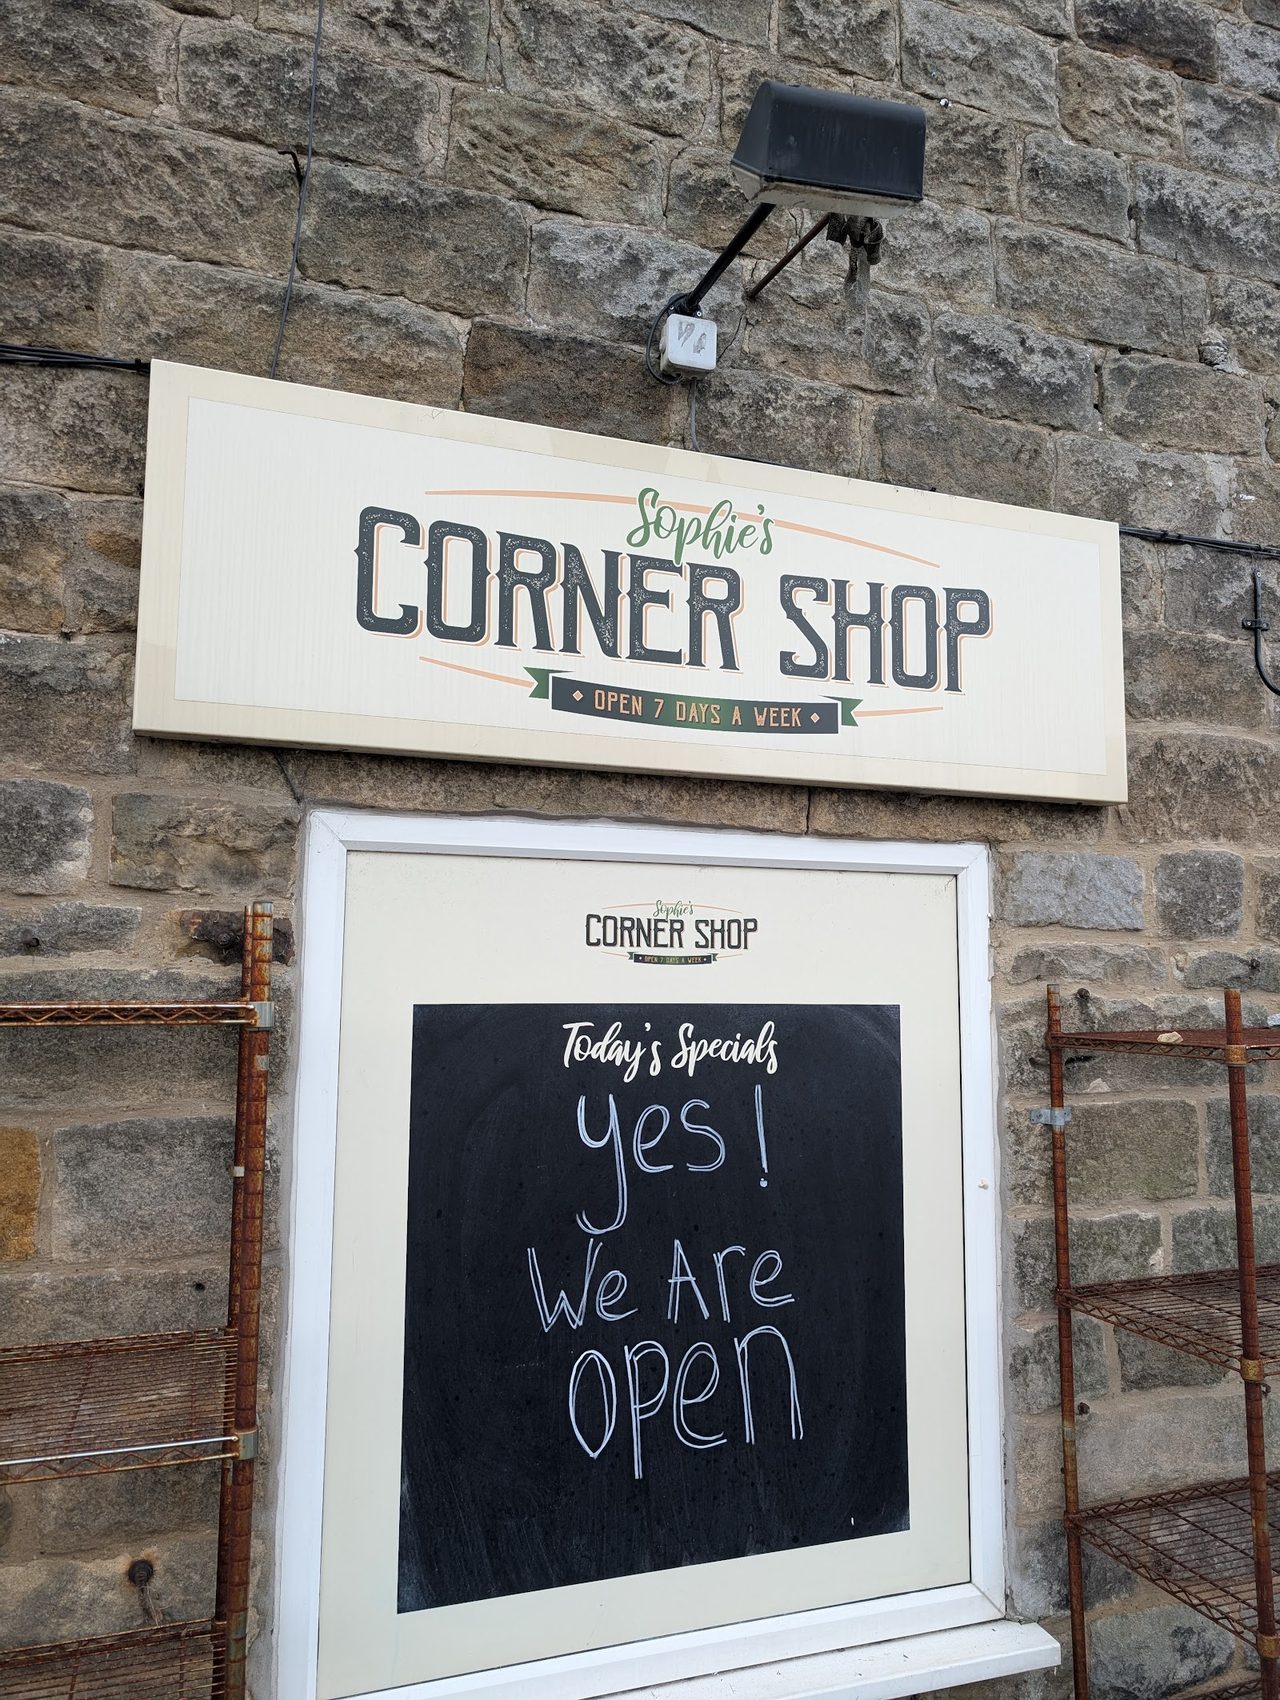 Sophie's
CORNER SHOP
OPEN 7 DAYS A WEEK
Sophie's
CORNER SHOP
OPEN 7 DAYS A WEEK
Today's Specials
yes!
We Are
open